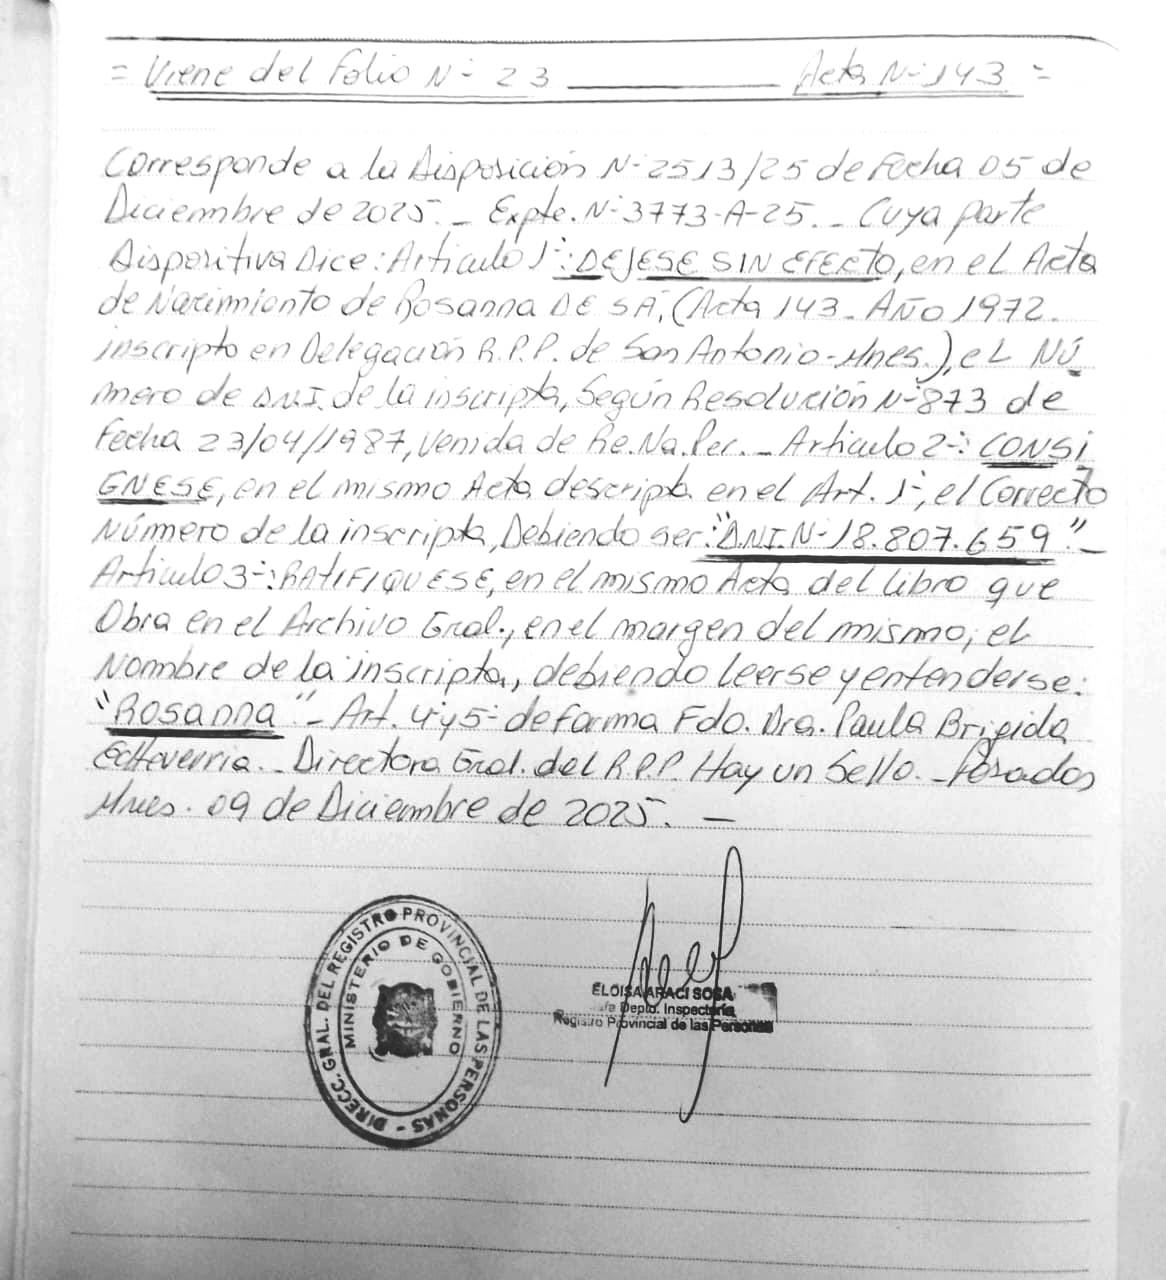 = Viene del Folio N° 23 ________ Acta N° 143 =
Corresponde a la Disposición N° 2513/25 de Fecha 05 de
Diciembre de 2025._ Expte. N° 3773-A-25._ Cuya parte
Dispositiva Dice: Articulo 1°: DEJESE SIN EFECTO, en el Acta
de Nacimiento de Rosanna DE SA, (Acta 143. AÑO 1972.
inscripto en Delegación R.P.P. de San Antonio-Mnes.), el NÚ
mero de D.N.I. de la inscripta, Según Resolución N° 873 de
Fecha 23/04/1987, Venida de Re.Na.Per._ Articulo 2°: CONSI
GNESE, en el mismo Acta descripta en el Art. 1°, el Correcto
Número de la inscripta, Debiendo ser: "D.N.I. N° 18.807.659"._
Articulo 3°: RATIFIQUESE, en el mismo Acta del libro que
Obra en el Archivo Gral., en el margen del mismo, el
Nombre de la inscripta, debiendo leerse y entenderse:
"Rosanna"_ Art. 4° y 5° de forma Fdo. Dra. Paula Brigida
Echeverria._ Directora Gral. del R.P.P. Hay un Sello._ Posadas
Mnes. 09 de Diciembre de 2025. _
DIRECC. GRAL. DEL REGISTRO PROVINCIAL DE LAS PERSONAS -
MINISTERIO DE GOBIERNO
ELOISA ARACI SOSA
Depto. Inspectoria
Registro Provincial de las Personas